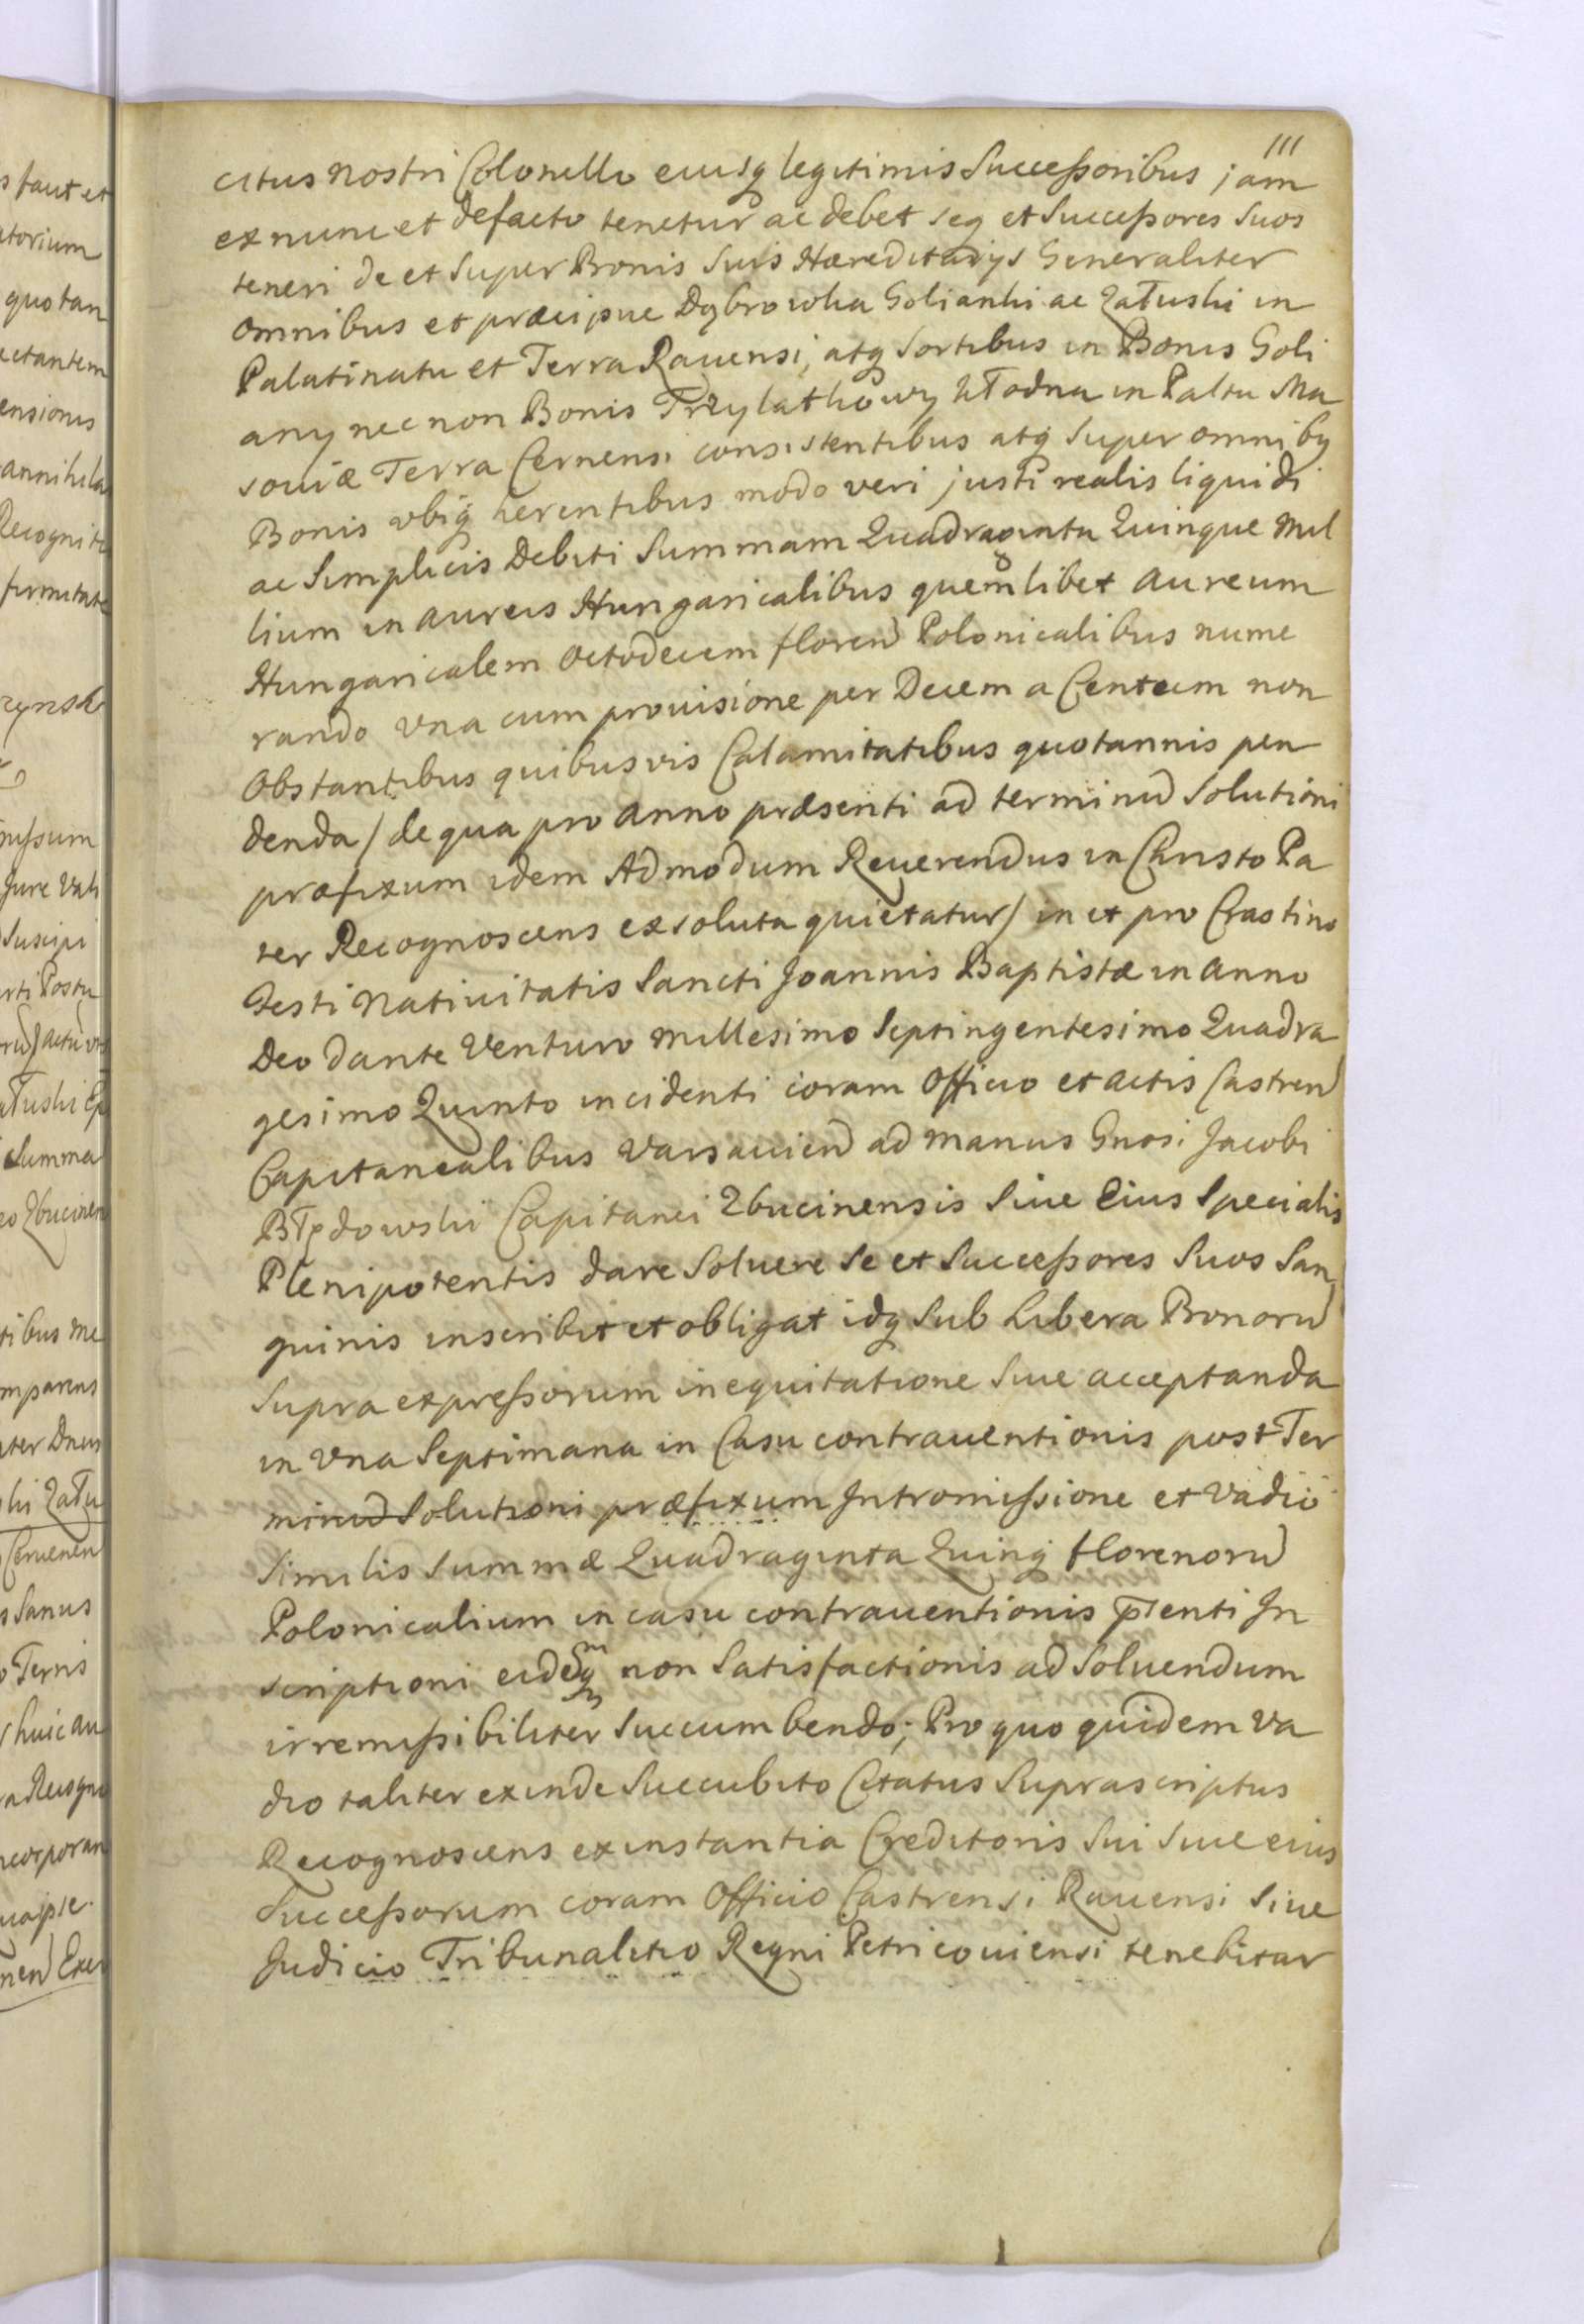 111
citus nostri Colonello eiusq legitimis Successoribus jam
ex nunc et defacto tenetur ac debet seq et Successores Suos
teneri de et Super Bonis Suis Hæreditarijs Generaliter
omnibus et præcipue Dąbrowka Golianki ac Załuski in
Palatinatu et Terra Rauensi, atq Sortibus in Bonis Goli
any nec non Bonis Przyłathowy Włodna in Paltu Ma
souiæ Terra Cernensi consistentibus atq Super omnibq
Bonis vbiq herentibus modo veri justi realis liquidi
ac Simplicis Debiti Summam Quadraginta Quinque Mil
lium in aureis Hungaricalibus quemlibet aureum
Hungaricalem Octodecem floren Polonicalibus nume
rando vna cum prouisione per Decem a Centum non
Obstantibus quibusvis Calamitatibus quotannis pen
denda / de qua pro anno præsenti ad terminu Solutioni
præfixum idem Admodum Reuerendus in Christo Pa
ter Recognoscens exsoluta quietatur / in et pro Crastino
Festi Natiuitatis Sancti Joannis Baptistæ in anno
Deo dante Venturo Millesimo Septingentesimo Quadra
gesimo Quinto incidenti coram Officio et actis Castren
Capitanealibus Varsauien ad manus Gnosi Jacobi
Błędowski Capitanei Zbucinensis Siue Eius Specialis
Plenipotentis dare Soluere Se et Successores Suos San
guinis inscribit et obligat idq Sub Libera Bonoru
Supra expressorum inequitatione Siue acceptanda
in vna Septimana in Casu contrauentionis post Ter
minu Solutioni præfixum Intromissione et vadio
Similis Summæ Quadraginta Quinq florenoru
Polonicalium in casu contrauentionis pñti In
scriptioni eidemq non Satisfactionis ad Soluendum
irremissibiliter Succumbendo; Pro quo quidem Va
dio taliter exinde Succubito Citatus Suprascriptus
Recognoscens ex instantia Creditoris Sui Siue eius
Successorum coram Officio Castrensi Rauensi Siue
Judicio Tribunalitio Regni Petricouiensi tenebitur